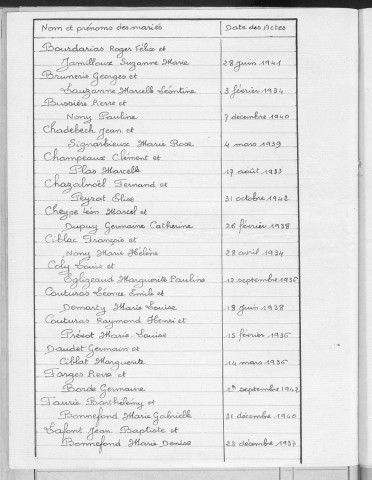 Nom et prénoms des mariés Date des Actes
Bourdarias Roger Félix et
Jamilloux Suzanne Marie 28 Juin 1941
Brunerie Georges et
Lauzanne Marcelle Léontine 3 février 1934
Bussière Pierre et
Nony Pauline 7 décembre 1940
Chadebech Jean et
Signarbieux Marie Rose 4 mars 1939
Champeaux Clément et
Plas Marcelle 17 août 1933
Chazalnoël Fernand et
Peyrat Elise 31 octobre 1942
Cheype Léon Marcel et
Dupuy Germaine Catherine 26 février 1938
Ciblac François et
Nony Marie Hélène 28 avril 1934
Coly Louis et
Eglizeaud Marguerite Pauline 18 septembre 1936
Couturas Léonce Emile et
Demarty Marie Louise 18 Juin 1938
Couturas Raymond Henri et
Prévot Marie-Louise 15 février 1936
Daudet Germain et
Ciblat Marguerite 14 mars 1936
Farges Pierre et
Borde Germaine 1er septembre 1942
Faurie Barthélémy et
Bonnefond Marie Gabrielle 21 décembre 1940
Lafont Jean Baptiste et
Bonnefond Marie Denise 23 décembre 1937